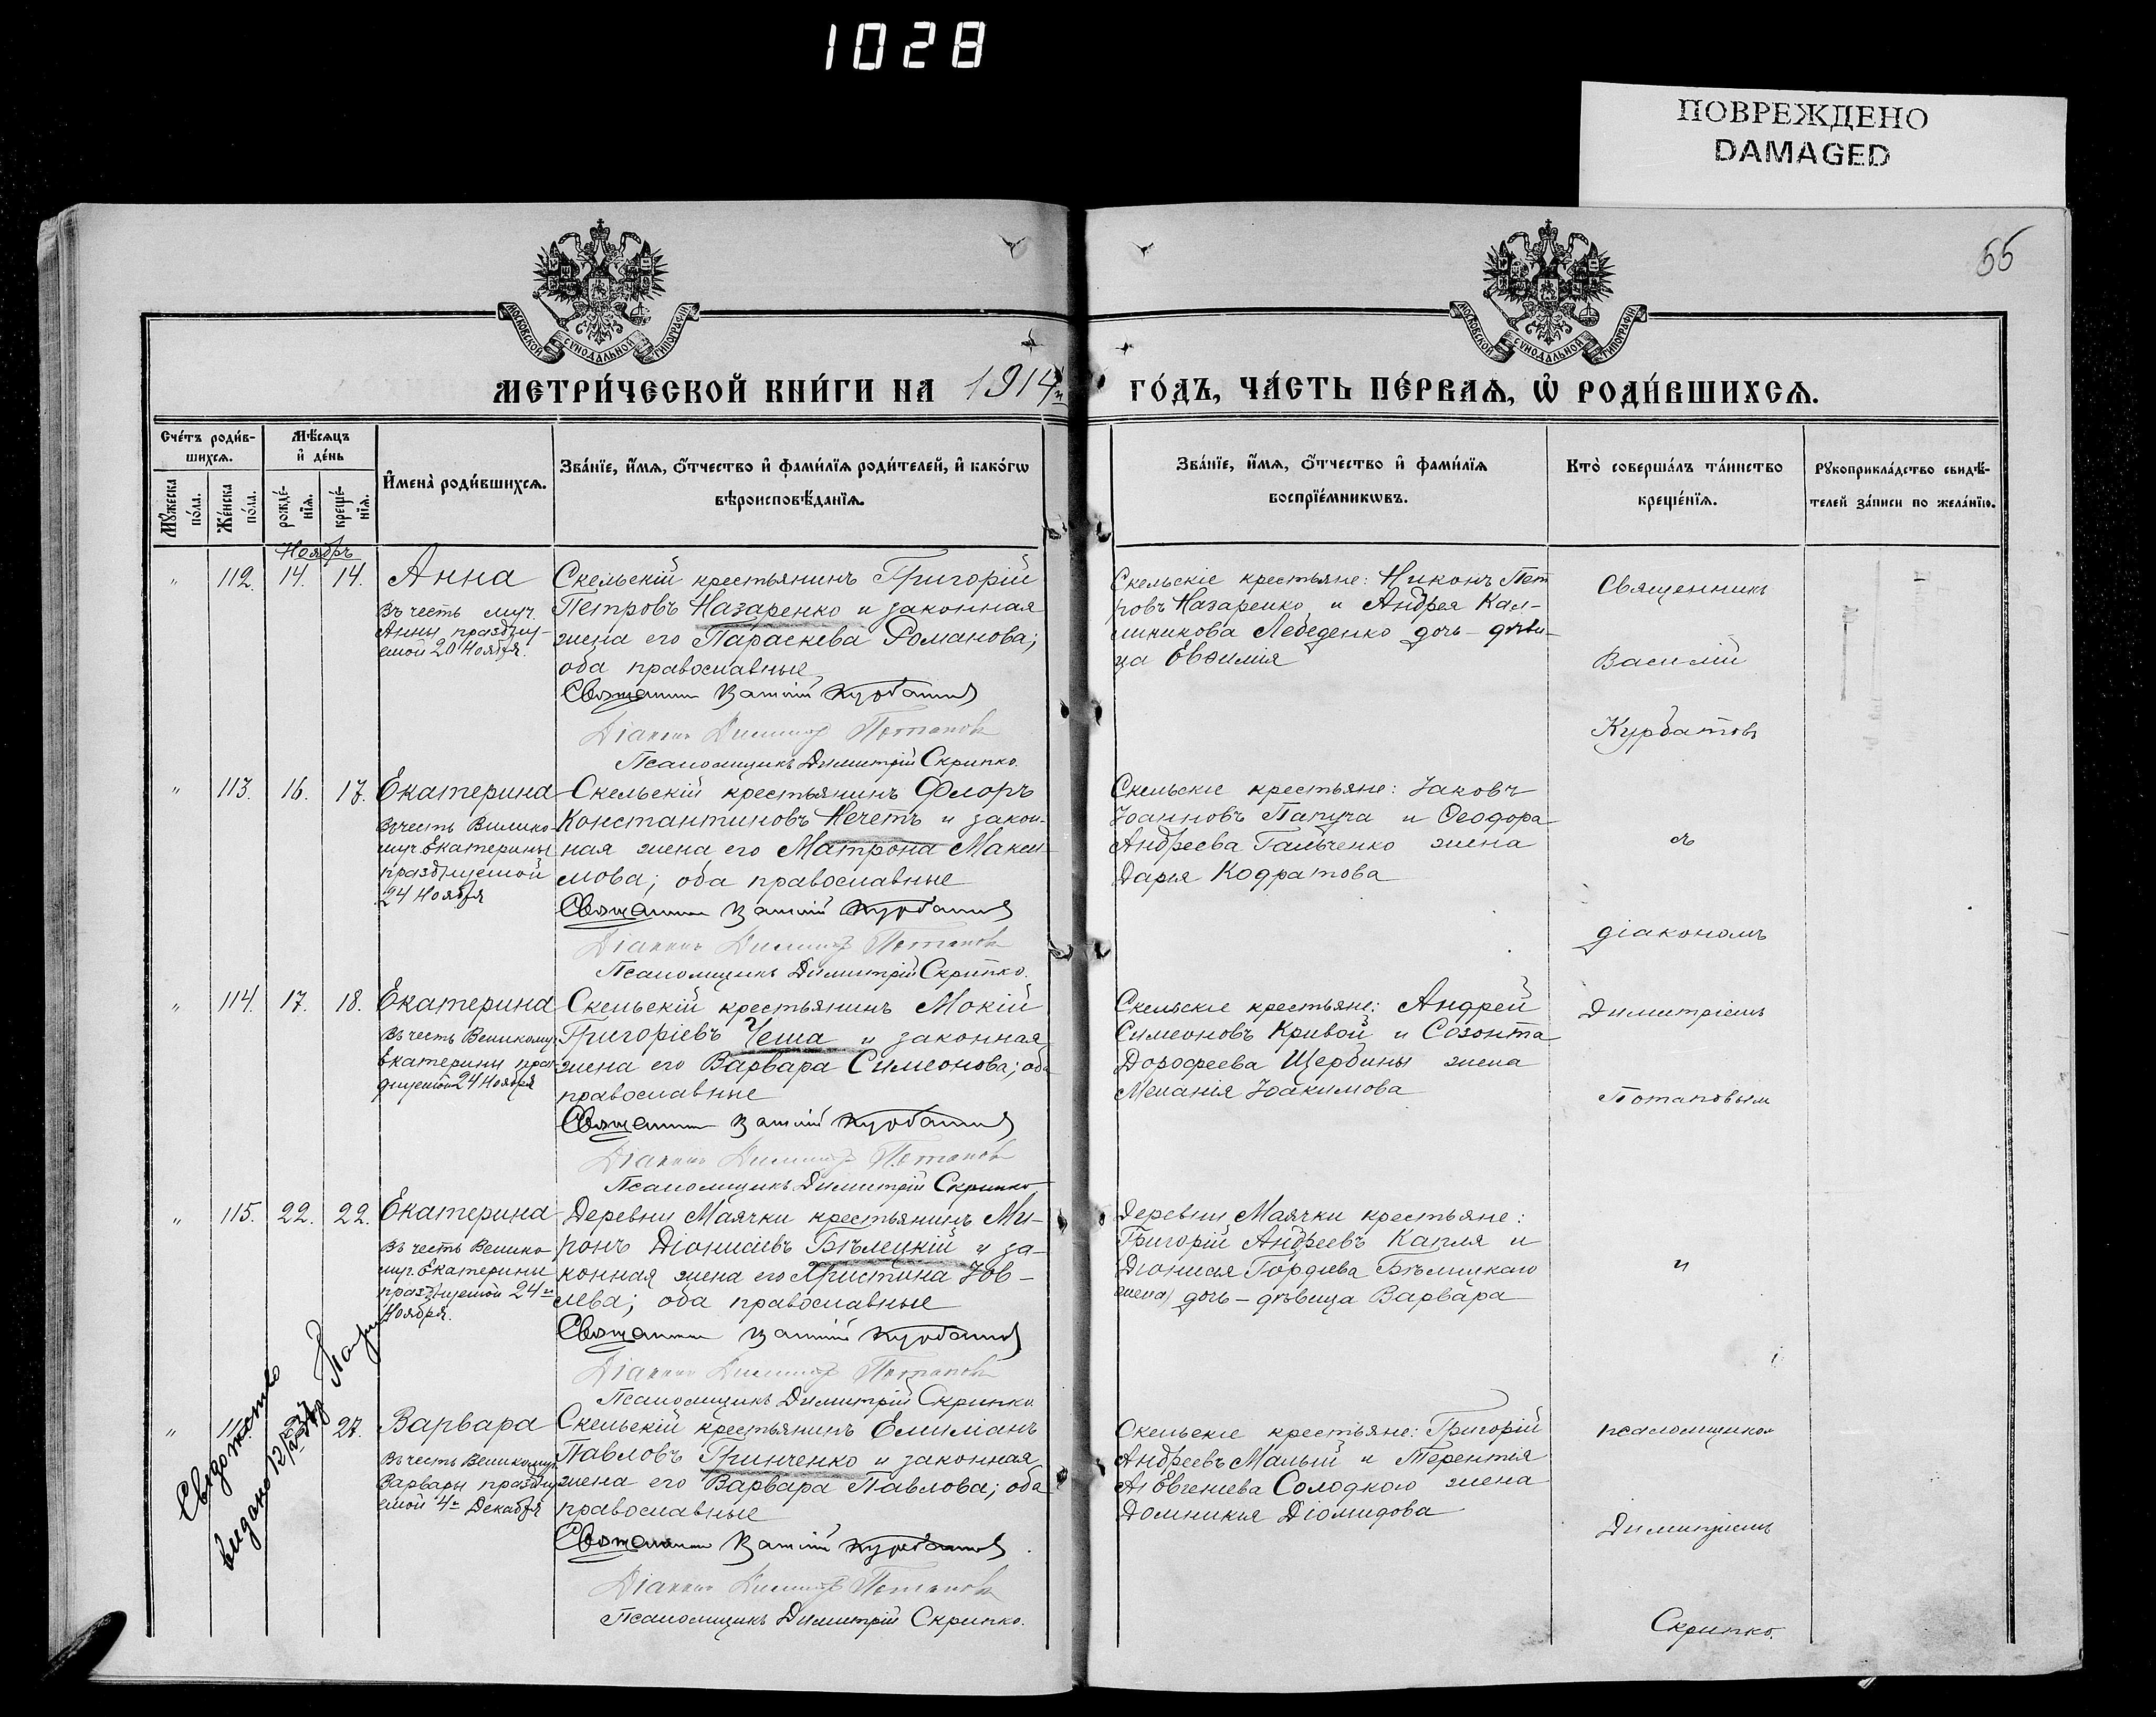 1028
ПОВРЕЖДЕНО
DAMAGED
55
МОСКОВСКОЙ СѴНОДАЛЬНОЙ ТИПОГРАФІИ
МОСКОВСКОЙ СѴНОДАЛЬНОЙ ТИПОГРАФІИ
МЕТРИ́ЧЕСКОЙ КНИ́ГИ НА 1914й
ГО́ДЪ, ЧА́СТЬ ПЕ́РВАѦ, Ѡ҆ РОДИ́ВШИХСѦ.
Сче́тъ роди́в-
шихсѧ.
Мѣ́сѧцъ
и҆ де́нь
Мꙋ́жеска
по́ла.
Же́нска
по́ла.
рожде́-
нїѧ.
креще́-
нїѧ.
И҆мена̀ роди́вшихсѧ.
Зва́нїе, и҆́мѧ, ѻ҆́тчество и҆ фами́лїѧ роди́телей, и҆ како́гѡ
вѣроисповѣ́данїѧ.
Зва́нїе, и҆́мѧ, ѻ҆́тчество и҆ фами́лїѧ
воспрїе́мникѡвъ.
Кто̀ соверша́лъ та́инство
креще́нїѧ.
Рꙋкоприкла́дство свидѣ́-
телей за́писи по жела́нїю.
Ноябръ
" 112. 14. 14. Анна
Въ честь муч.
Анны праздну-
емой 20 Ноября.
Скельскій крестьянинъ Григорій
Петровъ Назаренко и законная
жена его Параскева Романова;
оба православные
Священникъ Василій Курбатовъ
Діаконъ Димитрій Потаповъ
Псаломщикъ Димитрій Скрипко.
Скельскіе крестьяне: Никонъ Пет
ровъ Назаренко и Андрея Кал-
линикова Лебеденко дочь - дѣви-
ца Евѳимія
Священникъ
Василій
Курбатовъ
" 113. 16. 17. Екатерина
Въ честь Велико
муч. Екатерины
празднуемой
24 Ноября
Скельскій крестьянинъ Флоръ
Константиновъ Нечетъ и закон-
ная жена его Матрона Макси-
мова; оба православные
Священникъ Василій Курбатовъ
Діаконъ Димитрій Потаповъ
Псаломщикъ Димитрій Скрипко.
Скельскіе крестьяне: Іаковъ
Іоанновъ Папуча и Ѳеодора
Андреева Гальченко жена
Дарія Кодратова
съ
діакономъ
" 114. 17. 18. Екатерина
Въ честь Великомуч.
Екатерины праз-
днуемой 24 Ноября
Скельскій крестьянинъ Мокій
Григоріевъ Чеша и законная
жена его Варвара Симеонова; оба
православные
Священникъ Василій Курбатовъ
Діаконъ Димитрій Потаповъ
Псаломщикъ Димитрій Скрипко
Скельскіе крестьяне: Андрей
Симеоновъ Кривой и Созонта
Дороѳеева Щербины жена
Меланія Іоакимова
Димитріемъ
Потаповымъ
" 115. 22. 22. Екатерина
Въ честь Велико
муч. Екатерины
празднуемой 24го
Ноября.
Деревни Маячки крестьянинъ Ми-
ронъ Діонисіевъ Бѣлецкій и за-
конная жена его Христина Іов-
лева; оба православные
Священникъ Василій Курбатовъ
Діаконъ Димитрій Потаповъ
Псаломщикъ Димитрій Скрипко.
Деревни Маячки крестьяне:
Григорій Андреевъ Капля и
Діонисія Гордіева Бѣлицкаго
дочь - дѣвица Варвара
и
Свѣдоцтво
видано
" 27. Варвара
Въ честь Великомуч.
Варвары праздну
емой 4го Декабря
Скельскій крестьянинъ Емиліанъ
Павловъ Гринченко и законная
жена его Варвара Павлова; оба
православные
Священникъ Василій Курбатовъ
Діаконъ Димитрій Потаповъ
Псаломщикъ Димитрій Скрипко.
Скельскіе крестьяне: Григорій
Андреевъ Малый и Терентія
Евгеніева Солодкаго жена
Домникія Діомидова
псаломщикомъ
Димитріемъ
Скрипко.